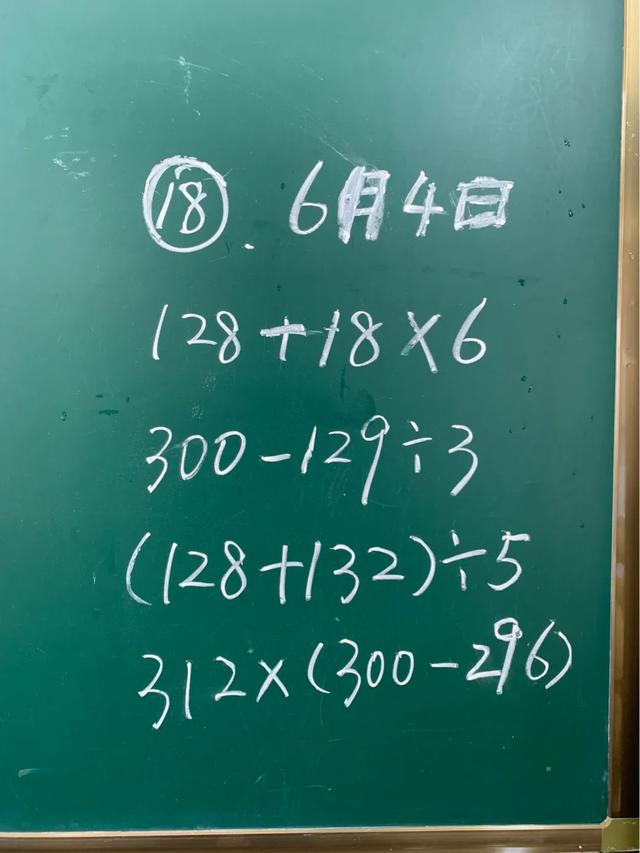 ⑱. 6月4日
128+18×6
300-129÷3
(128+132)÷5
312×(300-296)